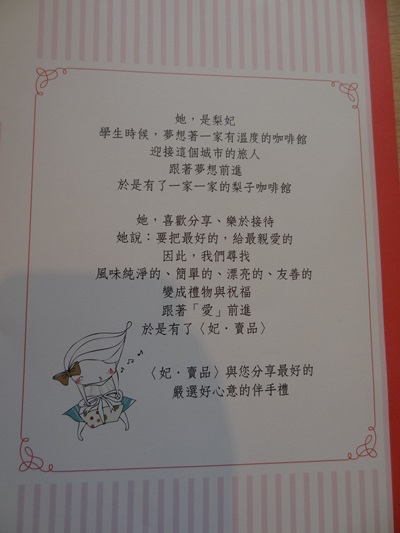 她，是梨妃
學生時候，夢想著一家有溫度的咖啡館
迎接這個城市的旅人
跟著夢想前進
於是有了一家一家的梨子咖啡館
她，喜歡分享、樂於接待
她說：要把最好的，給最親愛的
因此，我們尋找
風味純淨的、簡單的、漂亮的、友善的
變成禮物與祝福
跟著「愛」前進
於是有了〈妃・賣品〉
〈妃・賣品〉與您分享最好的
嚴選好心意的伴手禮